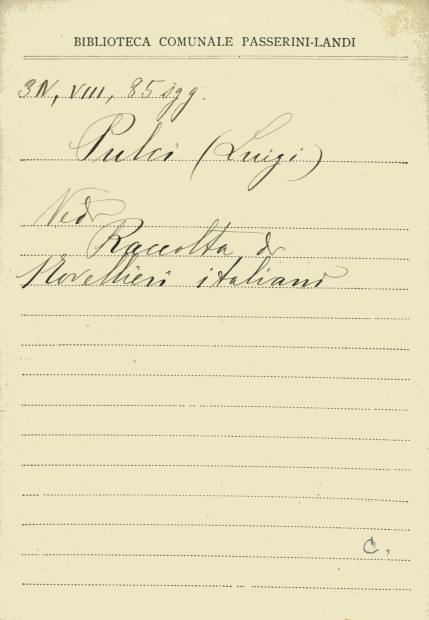 BIBLIOTECA COMUNALE PASSERINI-LANDI
3N, VIII, 85 sgg.
Pulci (Luigi)
Vedi
Raccolta di
Novellieri italiani
C.